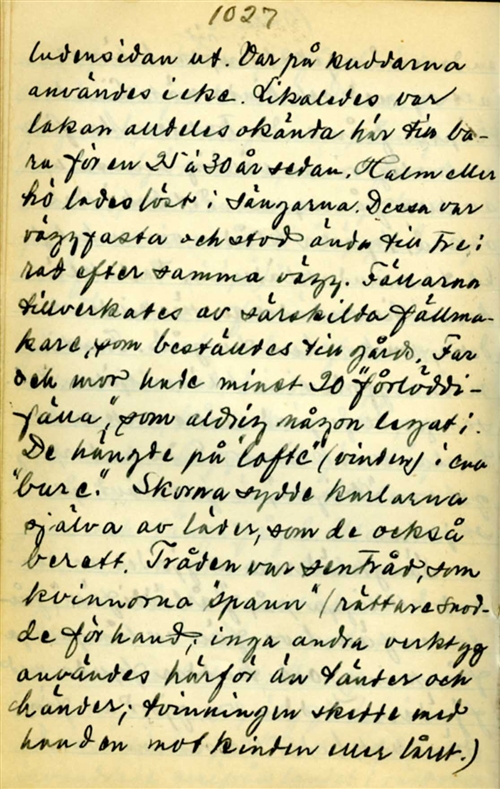 1027
ludensidan ut. Var på kuddarna
användes icke. Likaledes var
lakan alldeles okända här till ba-
ra för en 25 à 30 år sedan. Halm eller
hö lades löst i sängarna. Dessa var
väggfasta och stod ända till tre i
rad efter samma vägg. Fällarna
tillverkades av särskilda fällma-
kare, som beställdes till gårds. Far
och mor hade minst 20 "förlöddi-
fälla", som aldrig någon legat i.
De hängde på "lofte" (vinden) i ena
"bure". Skorna sydde karlarna
själva av läder, som de också
berett. Tråden var sentråd, som
kvinnorna "spann" (rättare snod-
de för hand; inga andra verktyg
användes härför än tänder och
händer; tvinningen skedde med
handen mot kinden eller låret.)